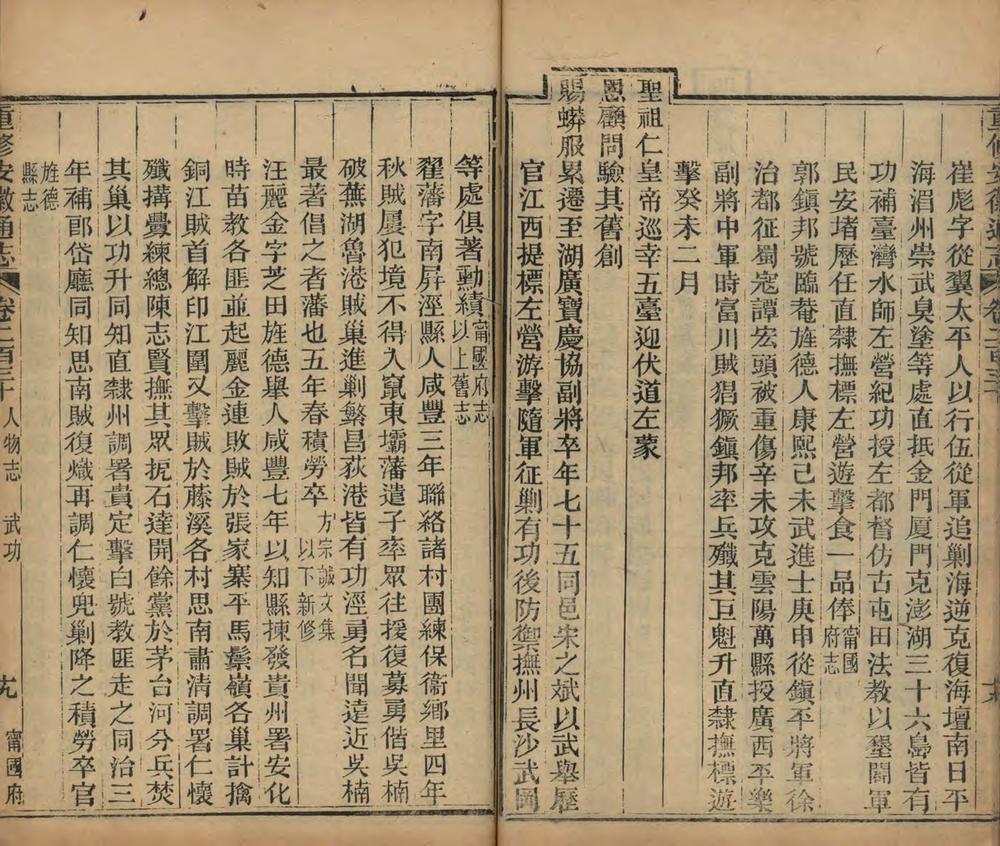 崔彪字從翼太平人以行伍從軍追剿海逆克復海壇南日平
海湄州崇武臭塗等處直抵金門厦門克澎湖三十六島皆有
功補臺灣水師左營紀功授左都督仿古屯田法教以墾闢軍
民安堵歷任直隸撫標左營遊擊食一品俸甯國府志
郭鎮邦號臨菴旌德人康熙己未武進士庚申從鎮平將軍徐
治都征蜀寇譚宏頭被重傷辛未攻克雲陽萬縣授廣西平樂
副將中軍時富川賊猖獗鎮邦率兵殲其巨魁升直隸撫標遊
擊癸未二月
聖祖仁皇帝巡幸五臺迎伏道左蒙
恩顧問驗其舊創
賜蟒服累遷至湖廣寶慶協副將卒年七十五同邑宋之斌以武舉歷
官江西提標左營游擊隨軍征剿有功後防禦撫州長沙武岡
等處俱著勳績甯國府志以上舊志
翟藩字南屏涇縣人咸豐三年聯絡諸村團練保衞鄉里四年
秋賊屢犯境不得入竄東壩藩遣子率眾往援復募勇偕吳楠
破蕪湖魯港賊巢進剿繁昌荻港皆有功涇勇名聞遠近吳楠
最著倡之者藩也五年春積勞卒方宗誠文集以下新修
汪麗金字芝田旌德舉人咸豐七年以知縣揀發貴州署安化
時苗教各匪並起麗金連敗賊於張家寨平馬鬃嶺各巢計擒
銅江賊首解印江圍又擊賊於藤溪各村思南肅清調署仁懷
殲搆釁練總陳志賢撫其眾扼石達開餘黨於茅台河分兵焚
其巢以功升同知直隸州調署貴定擊白號教匪走之同治三
年補郎岱廳同知思南賊復熾再調仁懷兜剿降之積勞卒官
旌德縣志
重修安徽通志 卷二百三十 人物志 武功 十九 甯國府